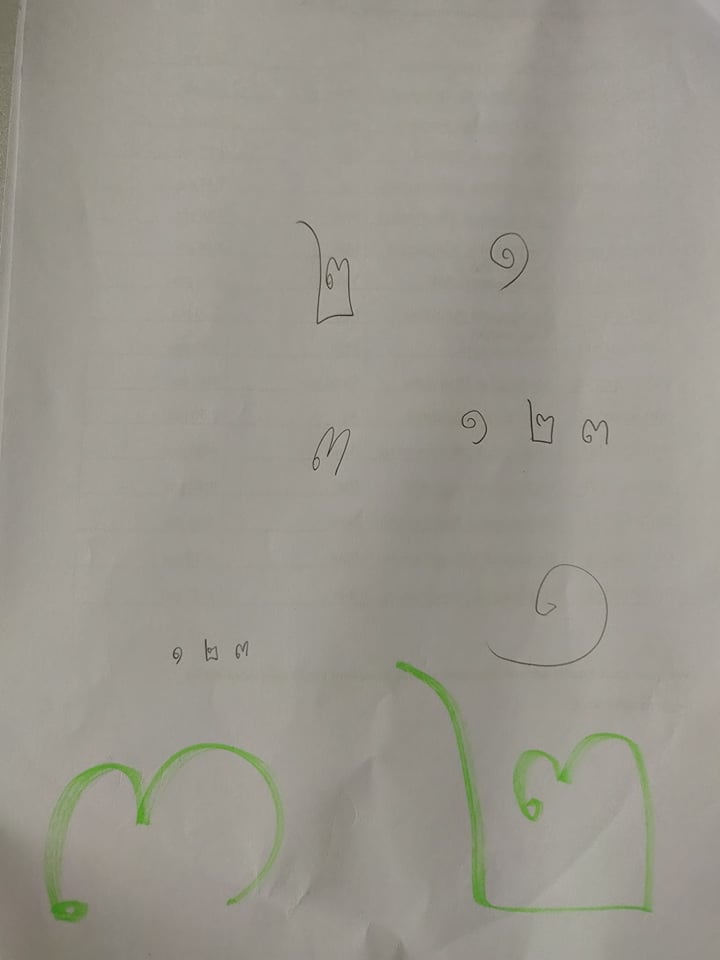 ๒ ๑
๓ ๑ ๒ ๓
๑
๑ ๒ ๓
๓ ๒